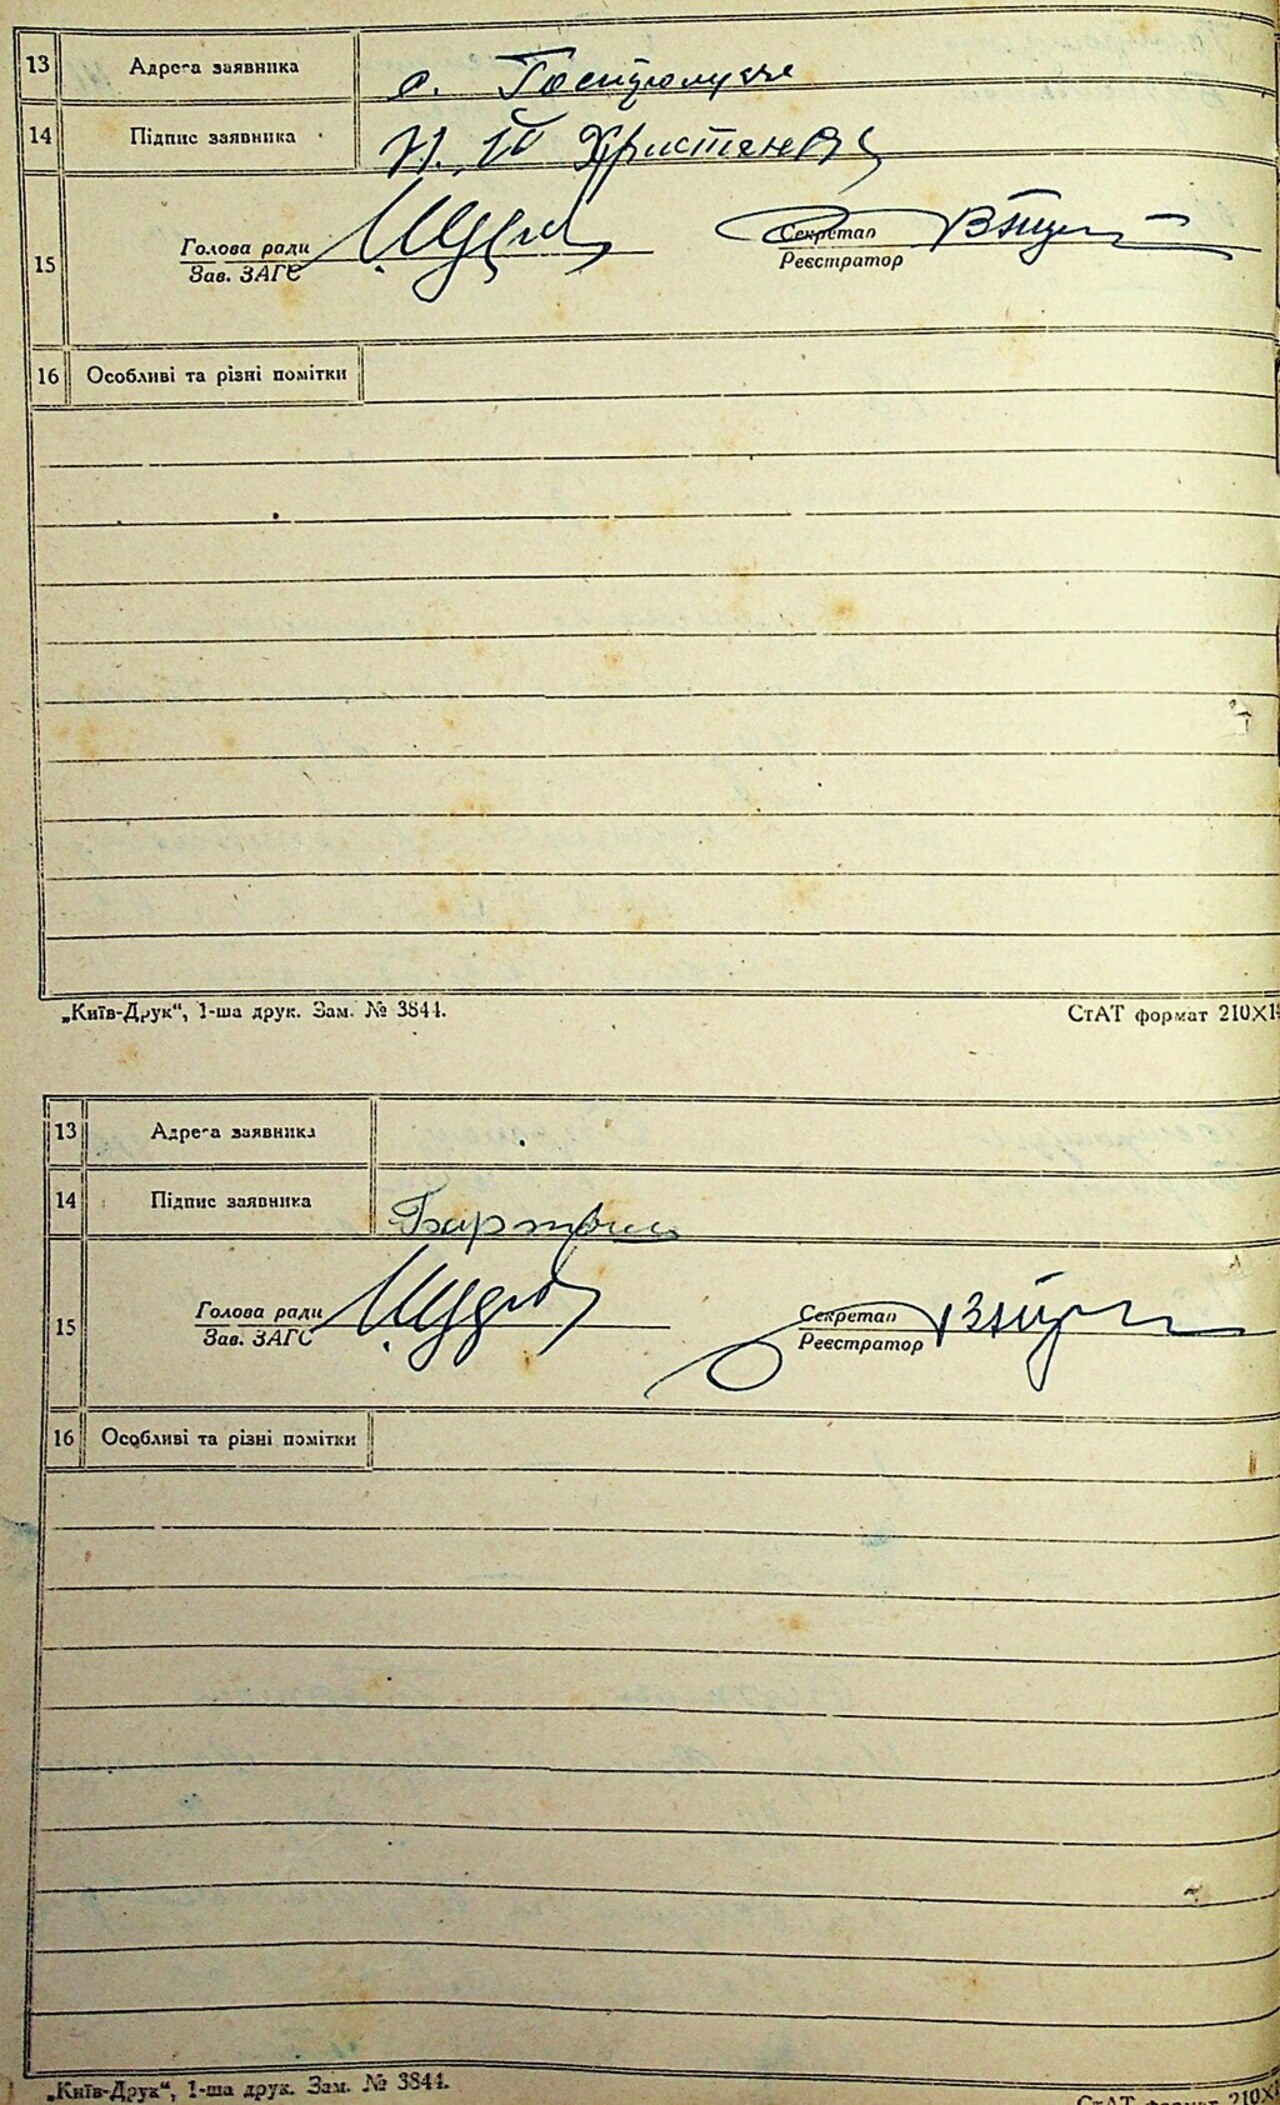 13 Адреса заявника с.
14 Підпис заявника
15 Голова ради Секретар
Зав. ЗАГС Реєстратор
16 Особливі та різні помітки
„Київ-Друк“, 1-ша друк. Зам. № 3844. СтАТ формат 210X1
13 Адреса заявника
14 Підпис заявника
15 Голова ради Секретар
Зав. ЗАГС Реєстратор
16 Особливі та різні помітки
„Київ-Друк“, 1-ша друк. Зам. № 3844. СтАТ формат 210X1